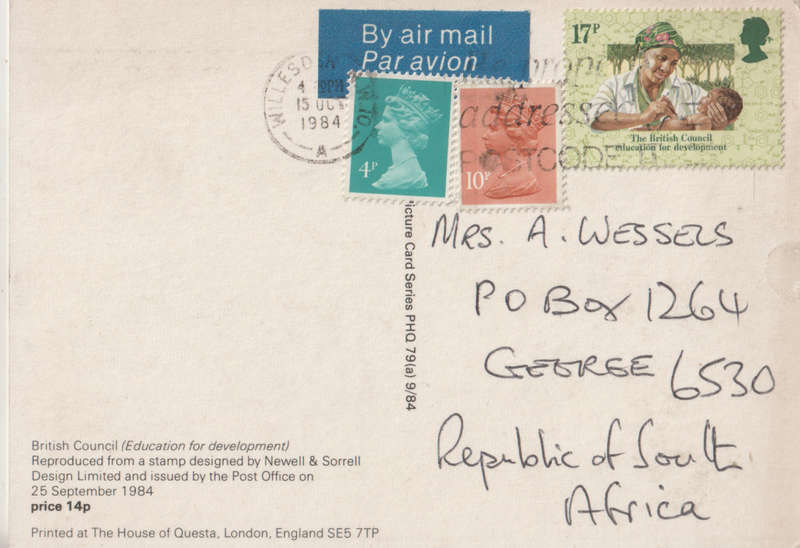 By air mail
Par avion
17P
WILLESDEN
15 OC
1984
A
4P
10P
addressed
POSTCODE
The British Council
education for development
Picture Card Series PHQ 79(a) 9/84
MRS. A. WESSELS
PO BOX 1264
GEORGE 6530
Republic of South
Africa
British Council (Education for development)
Reproduced from a stamp designed by Newell & Sorrell
Design Limited and issued by the Post Office on
25 September 1984
price 14p
Printed at The House of Questa, London, England SE5 7TP